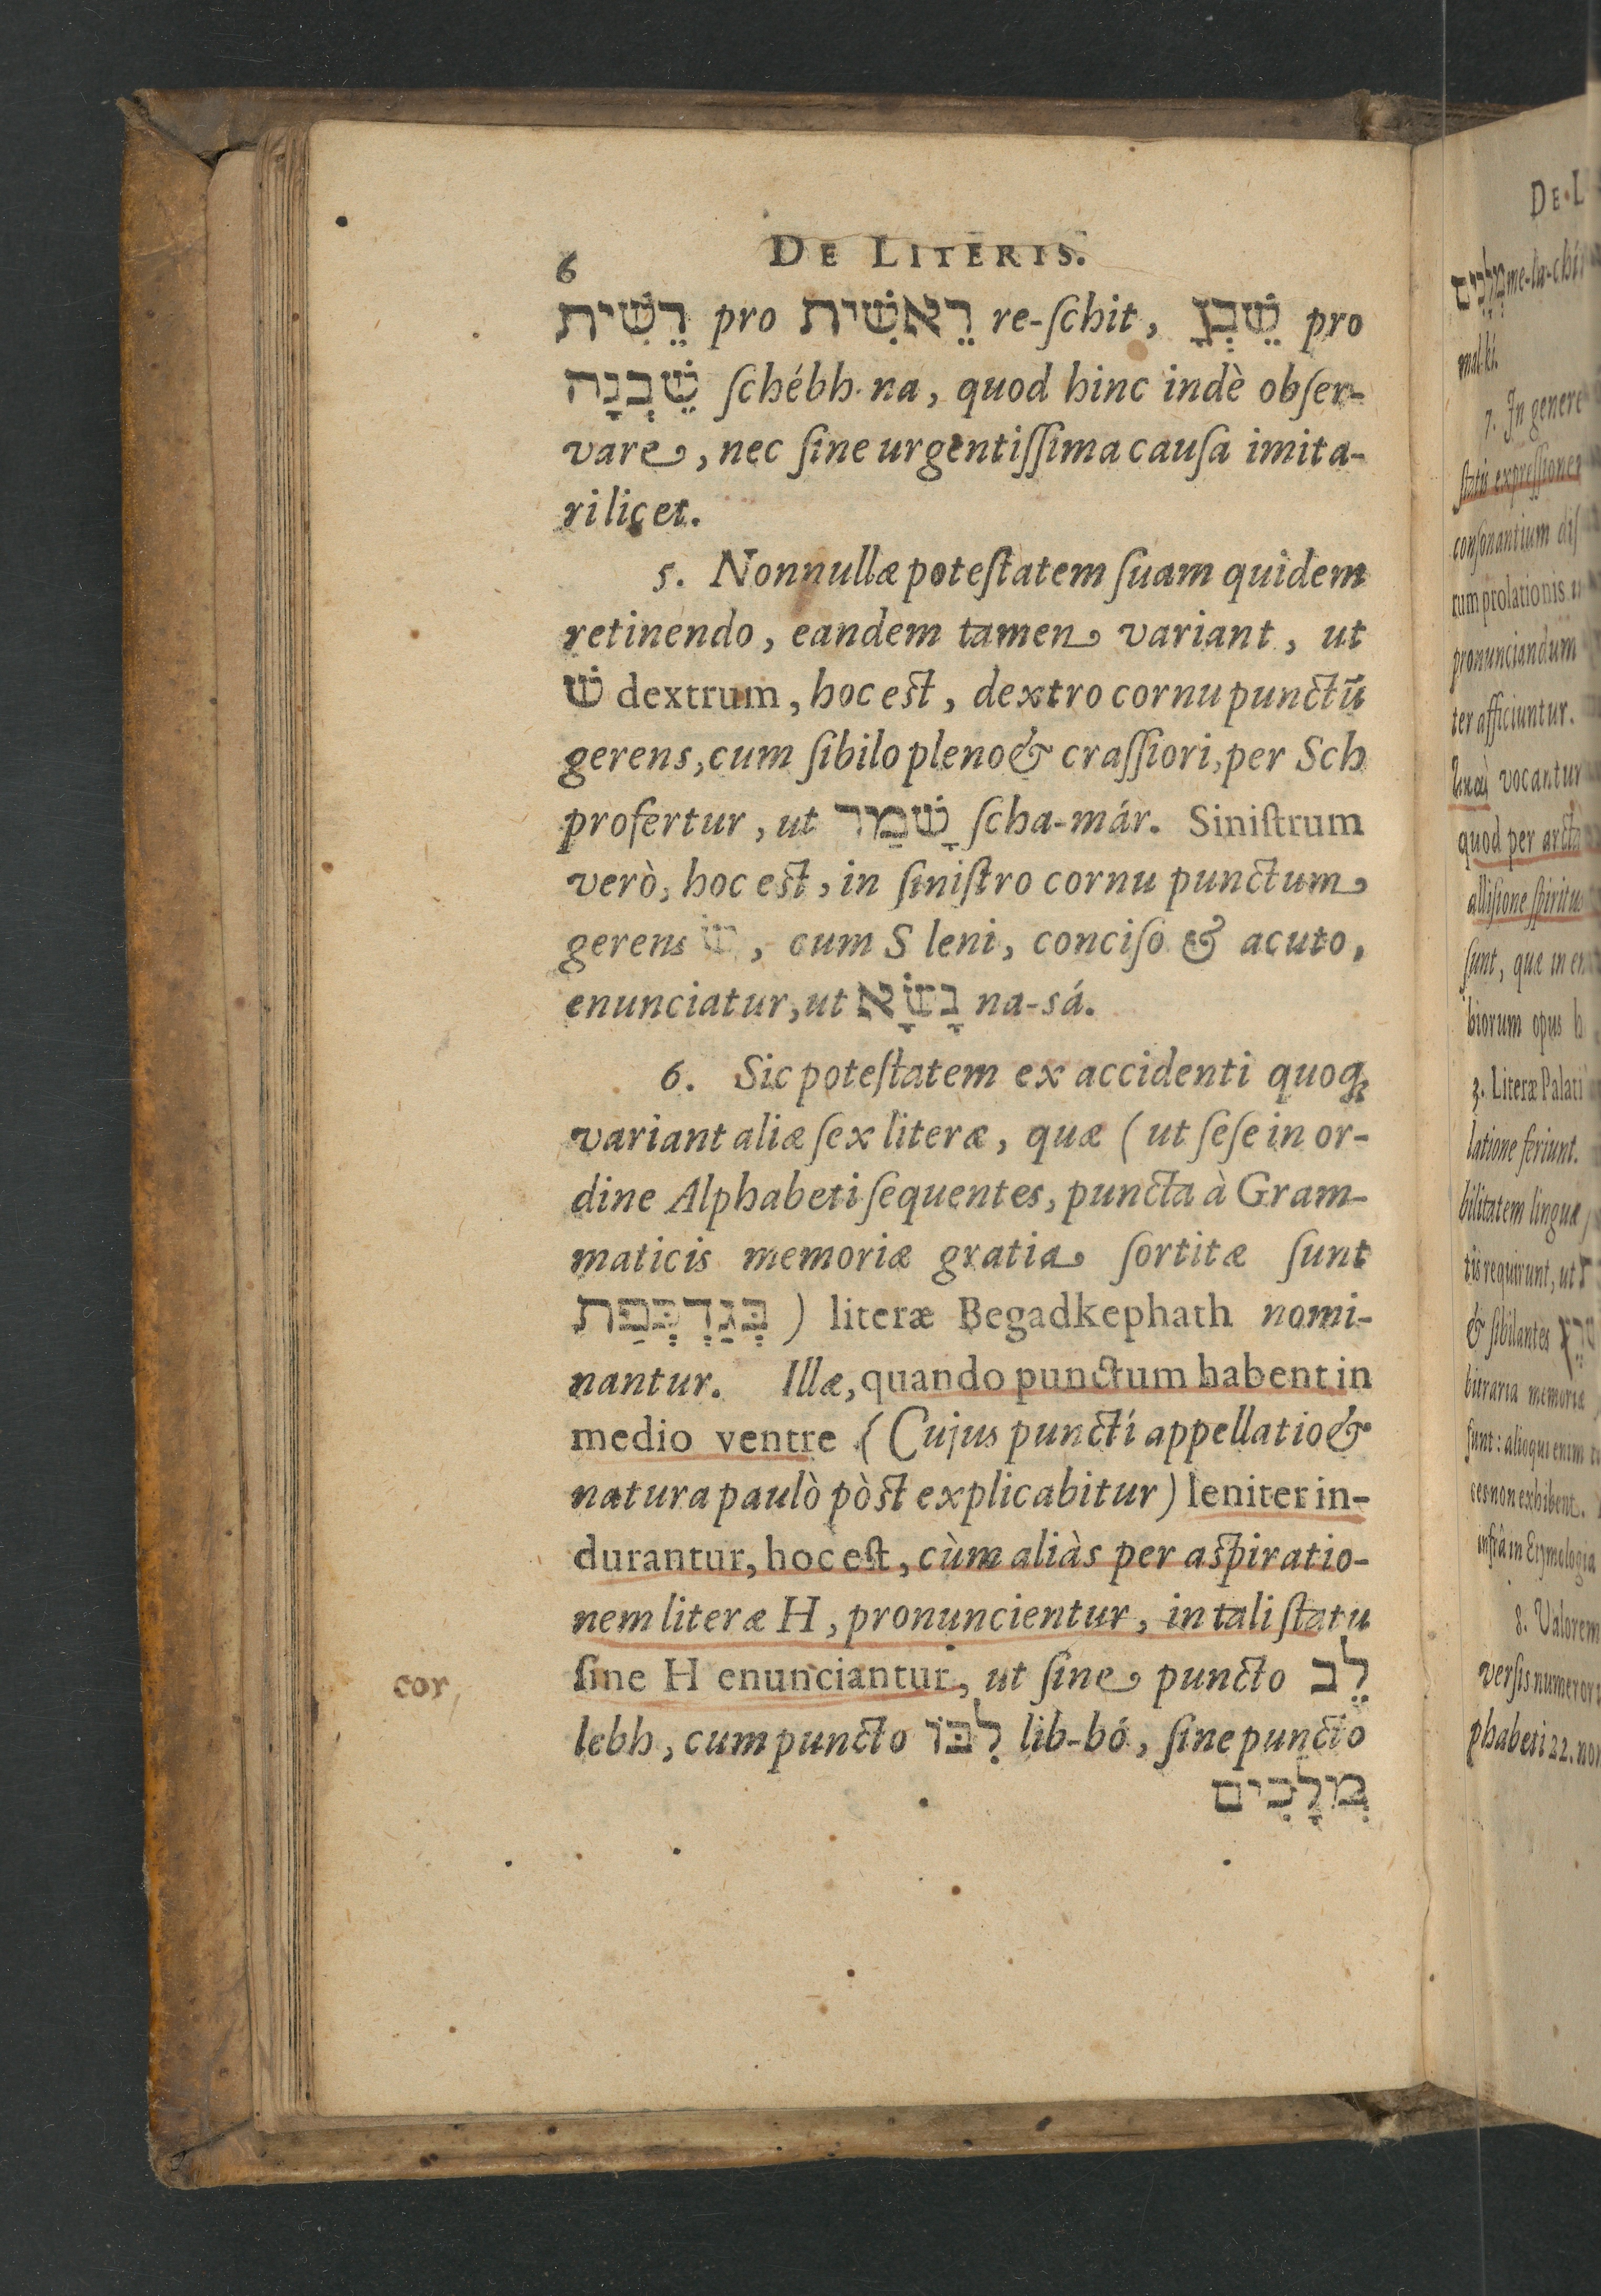 6 DE LITERIS.
רֵשִׁית pro רֵאשִׁית re-ſchit, שֵׁבְנָ pro
שֵׁבְנָה ſchébh-na, quod hinc indè obſer-
vare, nec ſine urgentiſſima cauſa imita-
ri licet.
5. Nonnullæ poteſtatem ſuam quidem
retinendo, eandem tamen variant, ut
שׁ dextrum, hoc eſt, dextro cornu punctū
gerens, cum ſibilo pleno & craſſiori, per Sch
profertur, ut שָׁמַר ſcha-már. Siniſtrum
verò, hoc eſt, in ſiniſtro cornu punctum
gerens שׂ, cum S leni, conciſo & acuto,
enunciatur, ut נָשָׂא na-sá.
6. Sic poteſtatem ex accidenti quoq;
variant aliæ ſex literæ, quæ (ut ſeſe in or-
dine Alphabeti ſequentes, puncta à Gram-
maticis memoriæ gratia ſortitæ ſunt
בְּגַדְכְּפַת) literæ Begadkephath nomi-
nantur. Illæ, quando punctum habent in
medio ventre (Cujus punctí appellatio &
natura paulò pòſt explicabitur) leniter in-
durantur, hoc eſt, cùm aliàs per aſpiratio-
nem literæ H, pronuncientur, in tali ſtatu
ſine H enunciantur, ut ſine puncto לֵב
cor,
lebh, cum puncto לִבּוֹ lib-bó, ſine puncto
מְלָכִים
DE L
מְלָכִים me-la-chí
mal-kí.
7. In genere
ſtatis expreſſiones
conſonantium diſ
rum prolationis
pronunciandum
ter afficiuntur.
vocantur
quod per arcta
alliſione ſpiritus
ſunt, quæ in en
biorum opus h
3. Literæ Palati
latione feriunt.
bilitatem linguæ
tis requirunt, ut
& ſibilantes
bitraria memoriæ
ſunt: alioqui enim
ces non exhibent.
infrà in Etymologia
8. Valorem
verſis numeror
phabeti 22. non